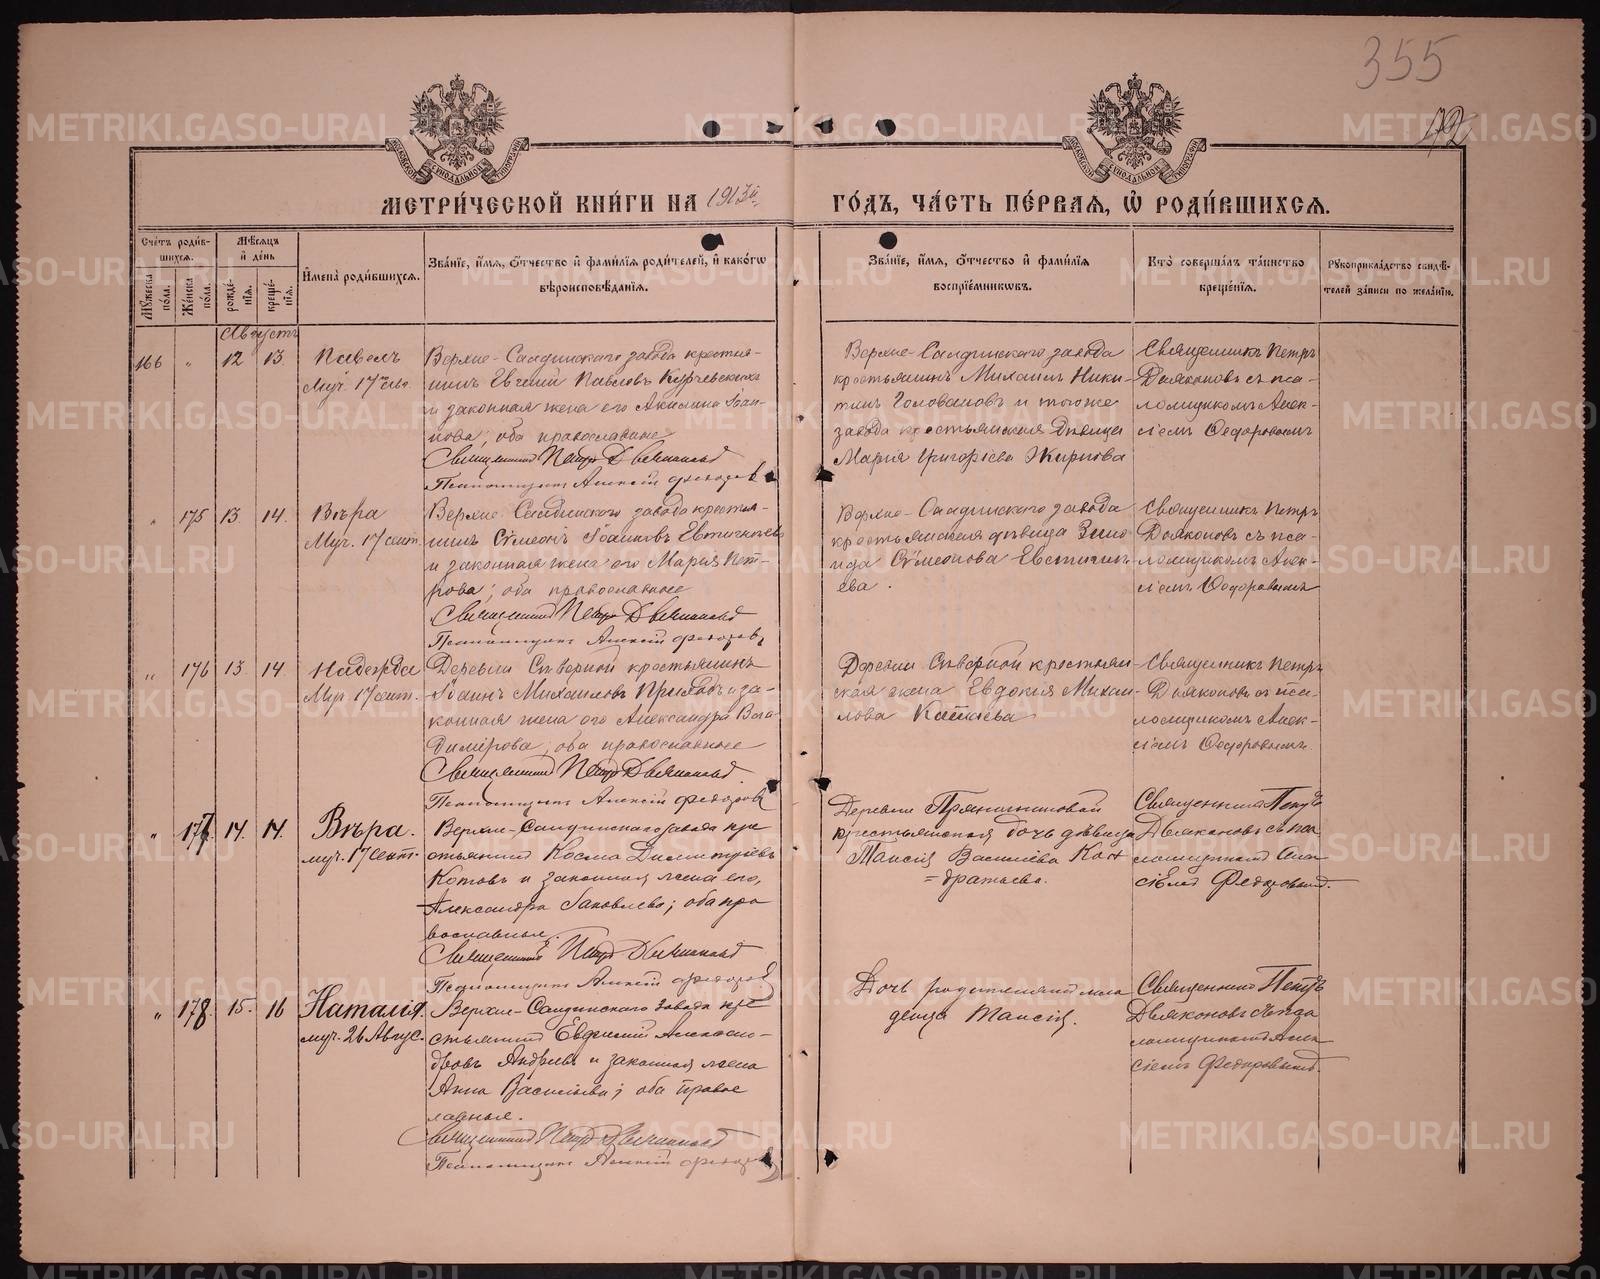 355
МЕТРИ́ЧЕСКОЙ КНИ́ГИ НА 1913й ГО́ДЪ, ЧА́СТЬ ПЕ́РВАЯ, Ѡ҆ РОДИ́ВШИХСЯ.
Сче́тъ роди́в-
шихся.
Мѣ́сяцъ
и҆ де́нь
Мꙋ́жеска по́ла.
Же́нска по́ла.
рожде́-
нїя.
креще́-
нїя.
И҆мена̀ роди́вшихся.
Зва́нїе, и҆́мя, ѻ҆́тчество и҆ фами́лїя роди́телей, и҆ како́гѡ
вѣроисповѣ́данїя.
Зва́нїе, и҆́мя, ѻ҆́тчество и҆ фами́лїя
воспрїе́мникѡвъ.
Кто̀ соверша́лъ та́инство
креще́нїя.
Рꙋкоприкла́дство свидѣ́-
телей за́писи по жела́нїю.
Августъ
166 " 12 13.
Павелъ
Муч. 17
Верхне-Салдинскаго завода крестья-
нинъ Евгеній Павловъ
и законная жена его Акилина Іоан-
нова; оба православные
Священникъ Петръ Дьяконовъ
Псаломщикъ Алексій Федоровъ
Верхне-Салдинскаго завода
крестьянинъ Михаилъ Ники-
тинъ Головановъ и тогоже
завода крестьянская дѣвица
Марія Григоріева Жиркова
Священникъ Петръ
Дьяконовъ съ пса-
ломщикомъ Алек-
сіемъ Ѳедоровымъ
" 175 13. 14.
Вѣра
Муч. 17 сент.
Верхне-Салдинскаго завода крестья-
нинъ Сѵмеонъ Іоанновъ
и законная жена его Марія Пет-
рова; оба православные
Священникъ Петръ Дьяконовъ
Псаломщикъ Алексій Федоровъ
Верхне-Салдинскаго завода
крестьянская дѣвица Зина-
ида Сѵмеонова
ева.
Священникъ Петръ
Дьяконовъ съ пса-
ломщикомъ Алек-
сіемъ Ѳедоровымъ
" 176 13 14.
Надежда
Муч. 17 сент.
Деревни Сѣверной крестьянинъ
Іоаннъ Михаиловъ и за-
конная жена его Александра Вла-
димірова; оба православные
Священникъ Петръ Дьяконовъ.
Псаломщикъ Алексій Федоровъ
Деревни Сѣверной крестьян-
ская жена Евдокія Михаи-
лова Катаева
Священникъ Петръ
Дьяконовъ съ пса-
ломщикомъ Алек-
сіемъ Ѳедоровымъ
" 177. 14. 14.
Вѣра.
муч. 17 сент.
Верхне-Салдинскаго завода кре
стьянинъ Косма Димитріевъ
Котовъ и законная жена его,
Александра Іаковлева; оба пра
вославные.
Священникъ Петръ Дьяконовъ
Псаломщикъ Алексій Федоровъ
Деревни Пряничниковой
крестьянская дочь дѣвица
Таисія Василіева Кон
=дратьева.
Священникъ Петръ
Дьяконовъ съ пса
ломщикомъ Алек
сіемъ Федоровымъ.
" 178. 15. 16
Наталія.
муч. 26 Авгус.
Верхне-Салдинскаго завода кре
стьянинъ Евфимій Алексан-
дровъ и законная жена
Анна Василіева; оба право
славные.
Священникъ Петръ Дьяконовъ
Псаломщикъ Алексій Федоровъ
Дочь родителей мла
денца Таисія.
Священникъ Петръ
Дьяконовъ съ пса
ломщикомъ Алек
сіемъ Федоровымъ.
METRIKI.GASO-URAL.RU